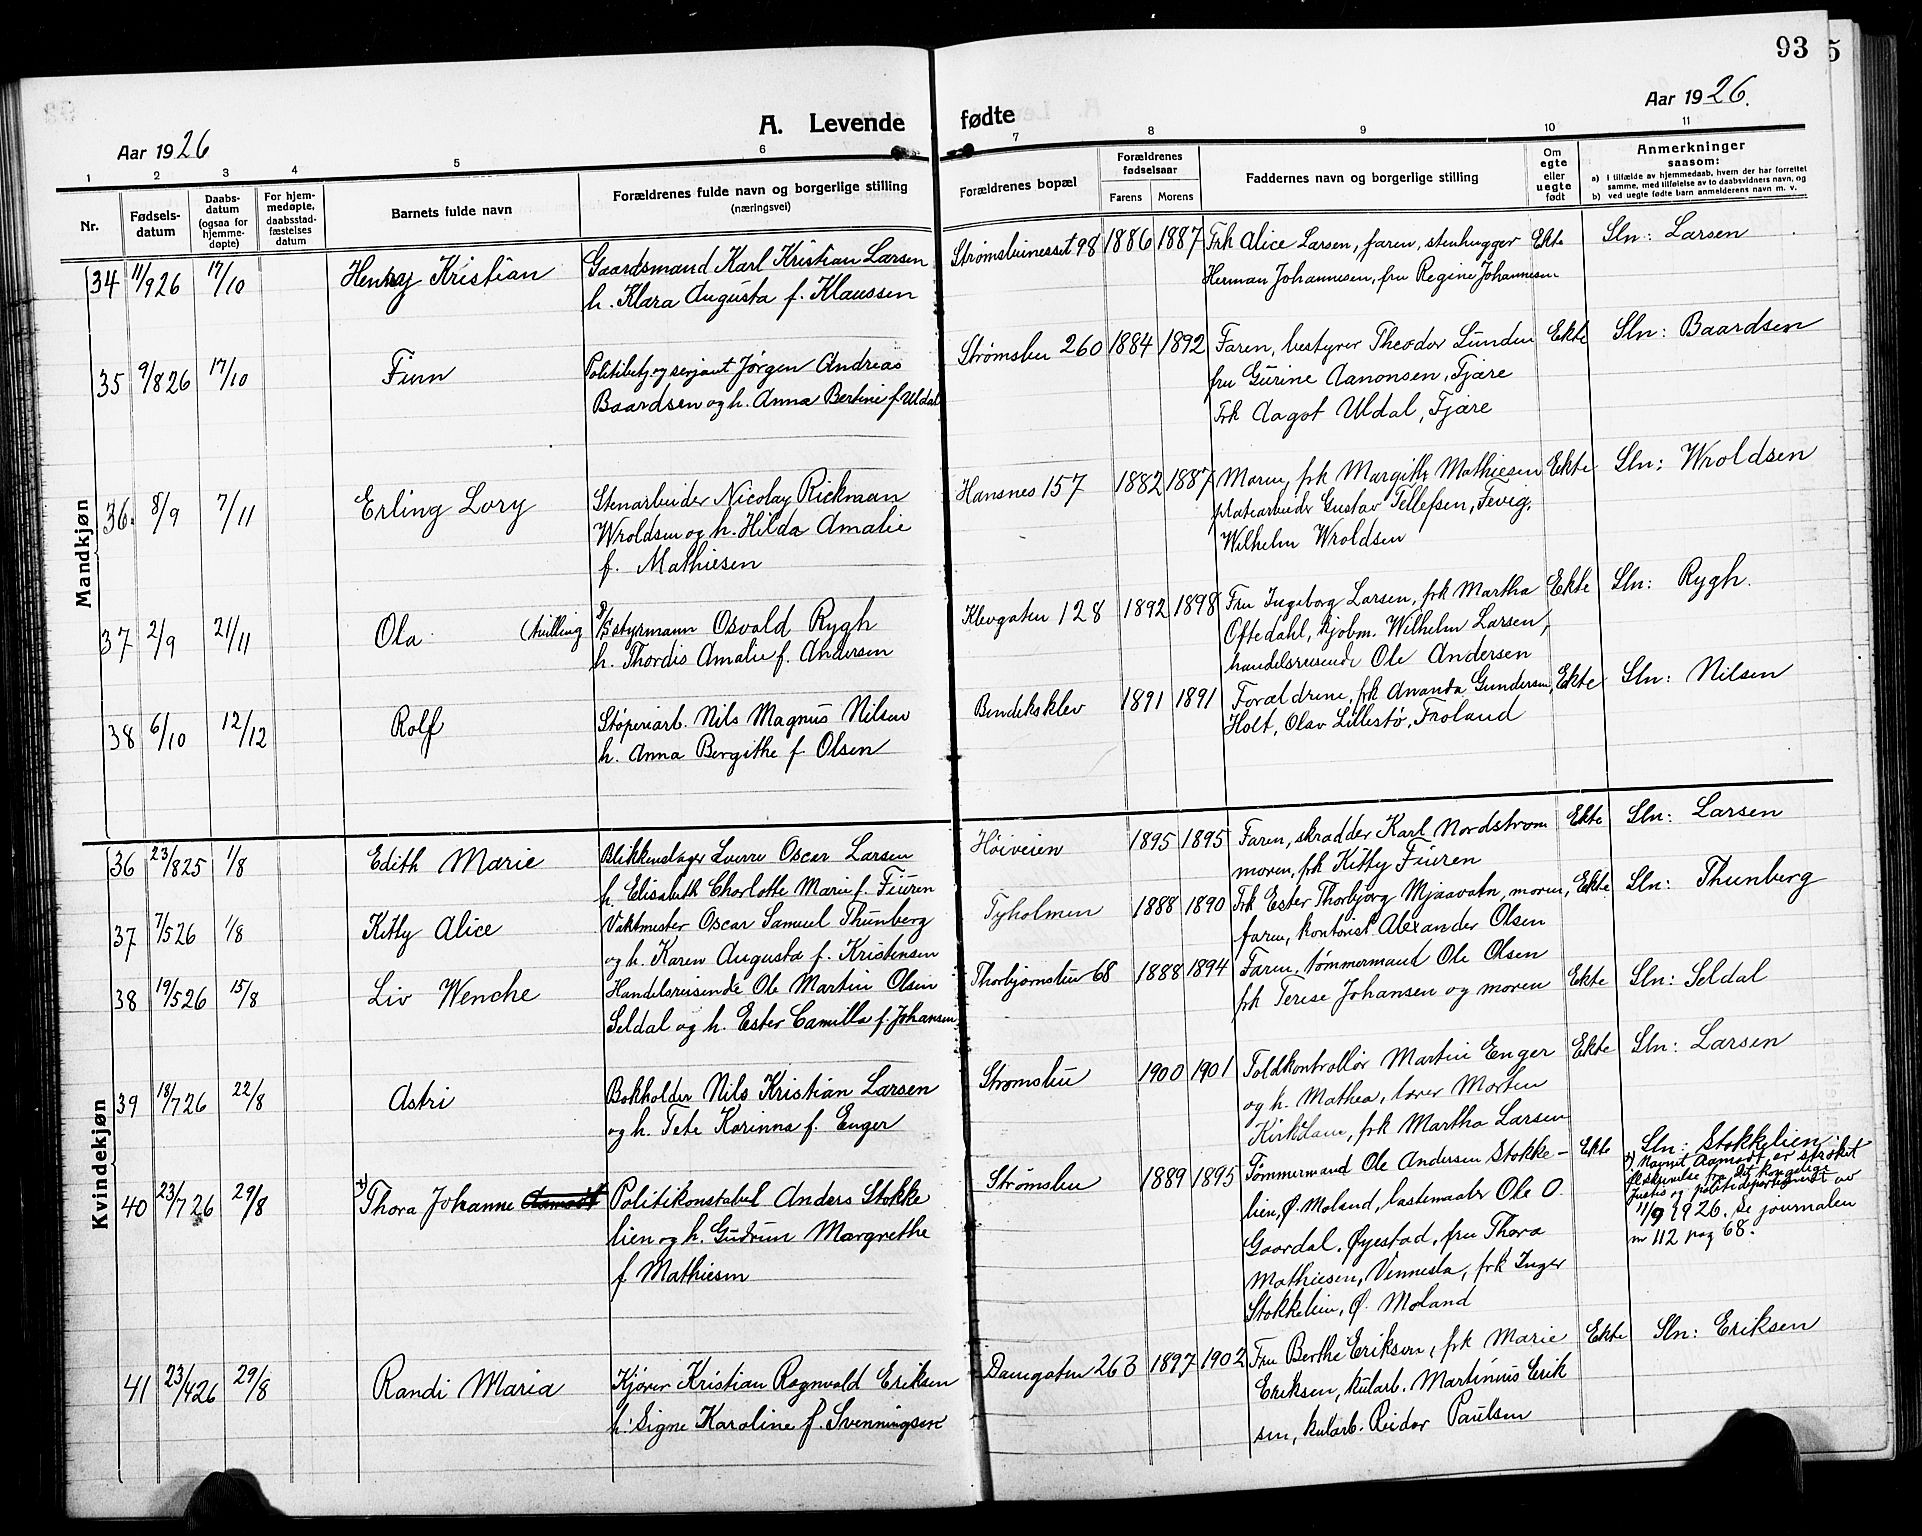 93
Aar 1926
A. Levende fødte
Aar 1926.
1 2 3 4 5 6 7 8 9 10 11
Nr.
Fødsels-
datum
Daabs-
datum
(ogsaa for
hjemme-
døpte)
For hjem-
medøpte,
daabsstad-
fæstelses
datum
Barnets fulde navn
Forældrenes fulde navn og borgerlige stilling
(næringsvei)
Forældrenes bopæl
Forældrenes
fødselsaar
Farens Morens
Faddernes navn og borgerlige stilling
Om
egte
eller
uegte
født
Anmerkninger
saasom:
a) I tilfælde av hjemmedaab, hvem der har forrettet
samme, med tilføielse av to daabsvidners navn, og
b) ved uegte fødte barn anmelderens navn m. v.
Mandkjøn
34 11/9 26 17/10 Henry Kristian
Gaardsmand Karl Kristian Larsen
h. Klara Augusta f. Klaussen
Strømsbunesset 98 1886 1887
Frk Alice Larsen, faren, stenhugger
Herman Johannesen, fru Regine Johannesen
Ekte Sln: Larsen
35 9/8 26 17/10 Finn
Politibetj. og serjant Jørgen Andreas
Baardsen og h. Anna Bertine f. Uldal
Strømsbu 260 1884 1892
Faren, bestyrer Theodor Lunden
fru Gurine Aanonsen, Fjære
Frk Aagot Uldal, Fjære
Ekte Sln: Baardsen
36. 8/9 7/11 Erling Lory
Stenarbeider Nicolay Rickman
Wroldsen og h. Hilda Amalie
f. Mathiesen
Hansnes 157 1882 1887
Moren, frk Margith Mathiesen
platearbeider Gustav Tellefsen, Fevig,
Wilhelm Wroldsen
Ekte Sln: Wroldsen
37 2/9 21/11 Ola (tvilling
styrmann Osvald Rygh
h. Thordis Amalie f. Andersen
Klevgaten 128 1892 1898
Fru Ingeborg Larsen, frk Martha
Oftedahl, kjøbm. Wilhelm Larsen,
handelsreisende Ole Andersen
Ekte Sln: Rygh.
38 6/10 12/12 Rolf
Støperiarb. Nils Magnus Nilsen
h. Anna Bergithe f. Olsen
Bendiksklev 1891 1891
Forældrene, frk Ananda Gundersen,
Holt, Olav Lillestø, Froland
Ekte Sln: Nilsen
Kvindekjøn
36 23/8 25 1/8 Edith Marie
Blikkenslager Sverre Oscar Larsen
h. Elisabeth Charlotte Marie f. Fiüren
Høiveien 1895 1895
Faren, skrædder Karl Nordstrøm
moren, frk Kitty Fiuren
Ekte Sln: Larsen
37 7/5 26 1/8 Kitty Alice
Vaktmester Oscar Samuel Thunberg
og h. Karen Augusta f. Kristensen
Tyholmen 1888 1890
Frk Ester Thorbjørg Mjaavatn, moren,
faren, kontorist Alexander Olsen
Ekte Sln: Thunberg
38 19/5 26 15/8 Liv Wenche
Handelsreisende Ole Martin Olsen
Seldal og h. Ester Camilla f. Johansen.
Thorbjørnsbu 68 1888 1894
Faren, tømmermand Ole Olsen
frk Terese Johansen og moren
Ekte Sln: Seldal
39 18/7 26 22/8 Astri
Bokholder Nils Kristian Larsen
og h. Tete Karinna f. Enger
Strømsbu 1900 1901
Toldkontrollør Martin Enger
og h. Mathea, lærer Morten
Kirkedam, frk Martha Larsen
Ekte Sln: Larsen
40 23/7 26 29/8 Thora Johanne Aamodt
Politikonstabel Anders Stokke
lien og h. Gudrun Margrethe
f. Mathiesen
Strømsbu 1889 1895
Tømmermand Ole Andersen Stokke-
lien, Ø. Moland, lastemaaler Ole O.
Gaardal, Øyestad, fru Thora
Mathiesen, Vennesla, frk Inger
Stokkelien, Ø. Moland
Ekte Sln: Stokkelien.
Navnet Aamodt er strøket
skrivelse fra det kongelige
justis og politidepartement av
11/9 1926. Se journalen
nr 112 pag 68.
41 23/4 26 29/8 Randi Maria
Kjører Kristian Ragnvald Eriksen
h. Signe Karoline f. Svenningsen
Damgaten 263 1897 1902
Fru Berthe Eriksen, frk Marie
Eriksen, kularb. Martinius Erik
sen, kularb. Reidar Paulsen
Ekte Sln: Eriksen